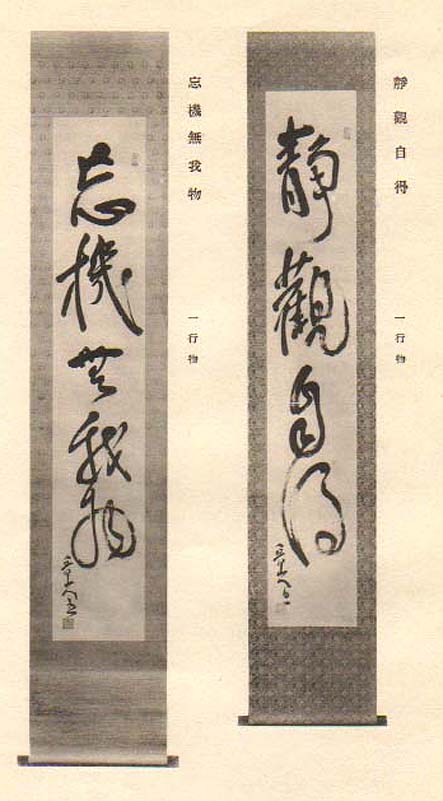 靜觀自得
一行物
靜觀自得
忘機無我物
一行物
忘機無我物